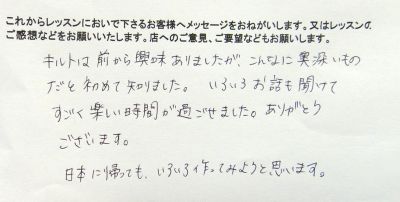 これからレッスンにおいで下さるお客様へメッセージをおねがいします。又はレッスンの
ご感想などをお願いいたします。店へのご意見、ご要望などもお願いします。
キルトは前から興味ありましたが、こんなに奥深いもの
だと初めて知りました。いろいろお話も聞けて
すごく楽しい時間が過ごせました。ありがとう
ございます。
日本に帰っても、いろいろ作ってみようと思います。